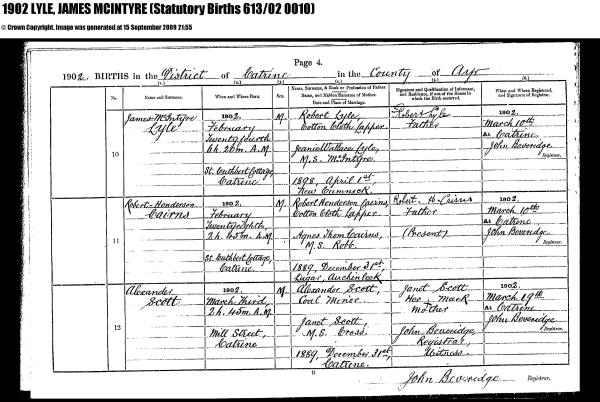 1902 LYLE, JAMES MCINTYRE (Statutory Births 613/02 0010)
© Crown Copyright. Image was generated at 15 September 2009 21:55
Page 4.
1902. BIRTHS in the District of Catrine in the County of Ayr
No. Name and Surname. When and Where Born. Sex. Name, Surname, & Rank or Profession of Father. Name, and Maiden Surname of Mother. Date and Place of Marriage. Signature and Qualification of Informant, and Residence, if out of the House in which the Birth occurred. When and Where Registered, and Signature of Registrar.
10
James McIntyre
Lyle
1902.
February
Twentyfourth
6h. 20m. A.M.
St. Cuthbert Cottage,
Catrine
M.
Robert Lyle,
Cotton Cloth Lapper.
Jeanie Wallace Lyle,
M.S. McIntyre.
1898, April 1st
New Cumnock
Robert Lyle
Father
1902.
March 10th
At Catrine
John Beveridge
Registrar.
11
Robert Henderson
Cairns
1902.
February
Twentyeighth
2h. 45m. A.M.
St. Cuthbert Cottage,
Catrine.
M
Robert Henderson Cairns,
Cotton Cloth Lapper.
Agnes Thom Cairns,
M.S. Robb.
1889, December 31st
Lugar, Auchinleck
Robert H. Cairns
Father
(Present)
1902.
March 10th
At Catrine
John Beveridge
Registrar.
12
Alexander
Scott
1902.
March Third,
2h. 45m. A.M.
Mill Street,
Catrine
M.
Alexander Scott,
Coal Miner.
Janet Scott,
M.S. Cross.
1889, December 31st,
Catrine.
Janet Scott
Her x mark
Mother
John Beveridge,
Registrar,
Witness.
1902.
March 19th
At Catrine
John Beveridge
Registrar.
11
John Beveridge Registrar.